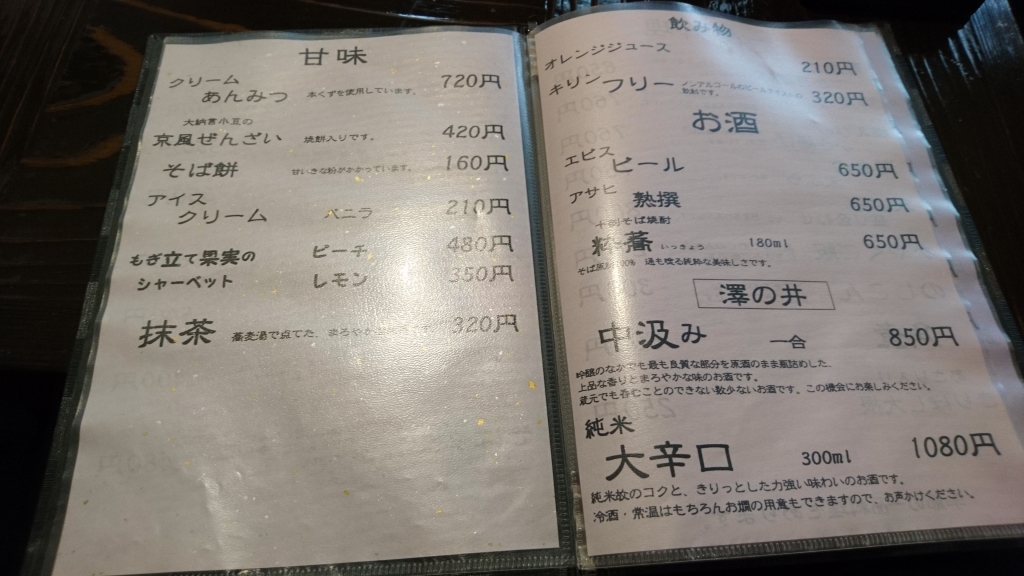 甘味
クリーム
あんみつ 本くずを使用しています。 720円
大納言小豆の
京風ぜんざい 焼餅入りです。 420円
そば餅 甘いきな粉がかかっています。 160円
アイス
クリーム バニラ 210円
もぎ立て果実の
シャーベット
ピーチ 480円
レモン 350円
抹茶 蕎麦湯で点てた、まろやか 320円
飲み物
オレンジジュース 210円
キリンフリー ノンアルコールのビールテイストの
飲料です。 320円
お酒
エビス
ビール 650円
アサヒ
熟撰 650円
そば焼酎
蕎 いっきょう 180ml 650円
そば 通も唸る純粋な美味しさです。
澤の井
中汲み 一合 850円
吟醸のなかでも最も良質な部分を原酒のまま瓶詰めした、
上品な香りとまろやかな味のお酒です。
蔵元でも呑むことのできない数少ないお酒です。この機会にお楽しみください。
純米
大辛口 300ml 1080円
純米故のコクと、きりっとした力強い味わいのお酒です。
冷酒・常温はもちろんお燗の用意もできますので、お声かけください。